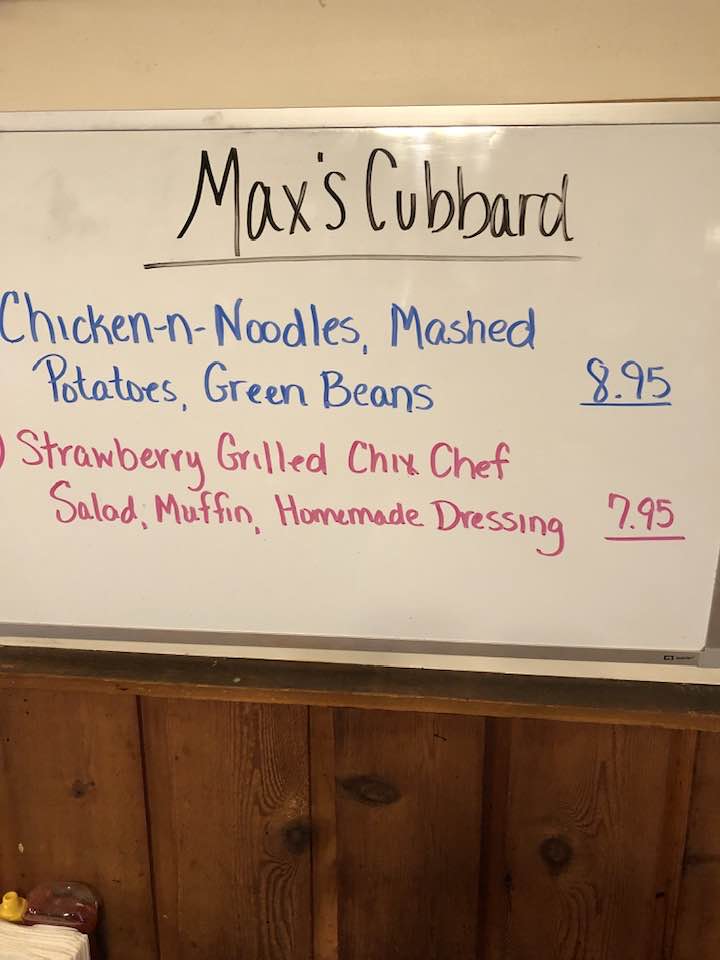 Max's Cubbard
Chicken-n-Noodles, Mashed
Potatoes, Green Beans 8.95
) Strawberry Grilled Chix Chef
Salad, Muffin, Homemade Dressing 7.95